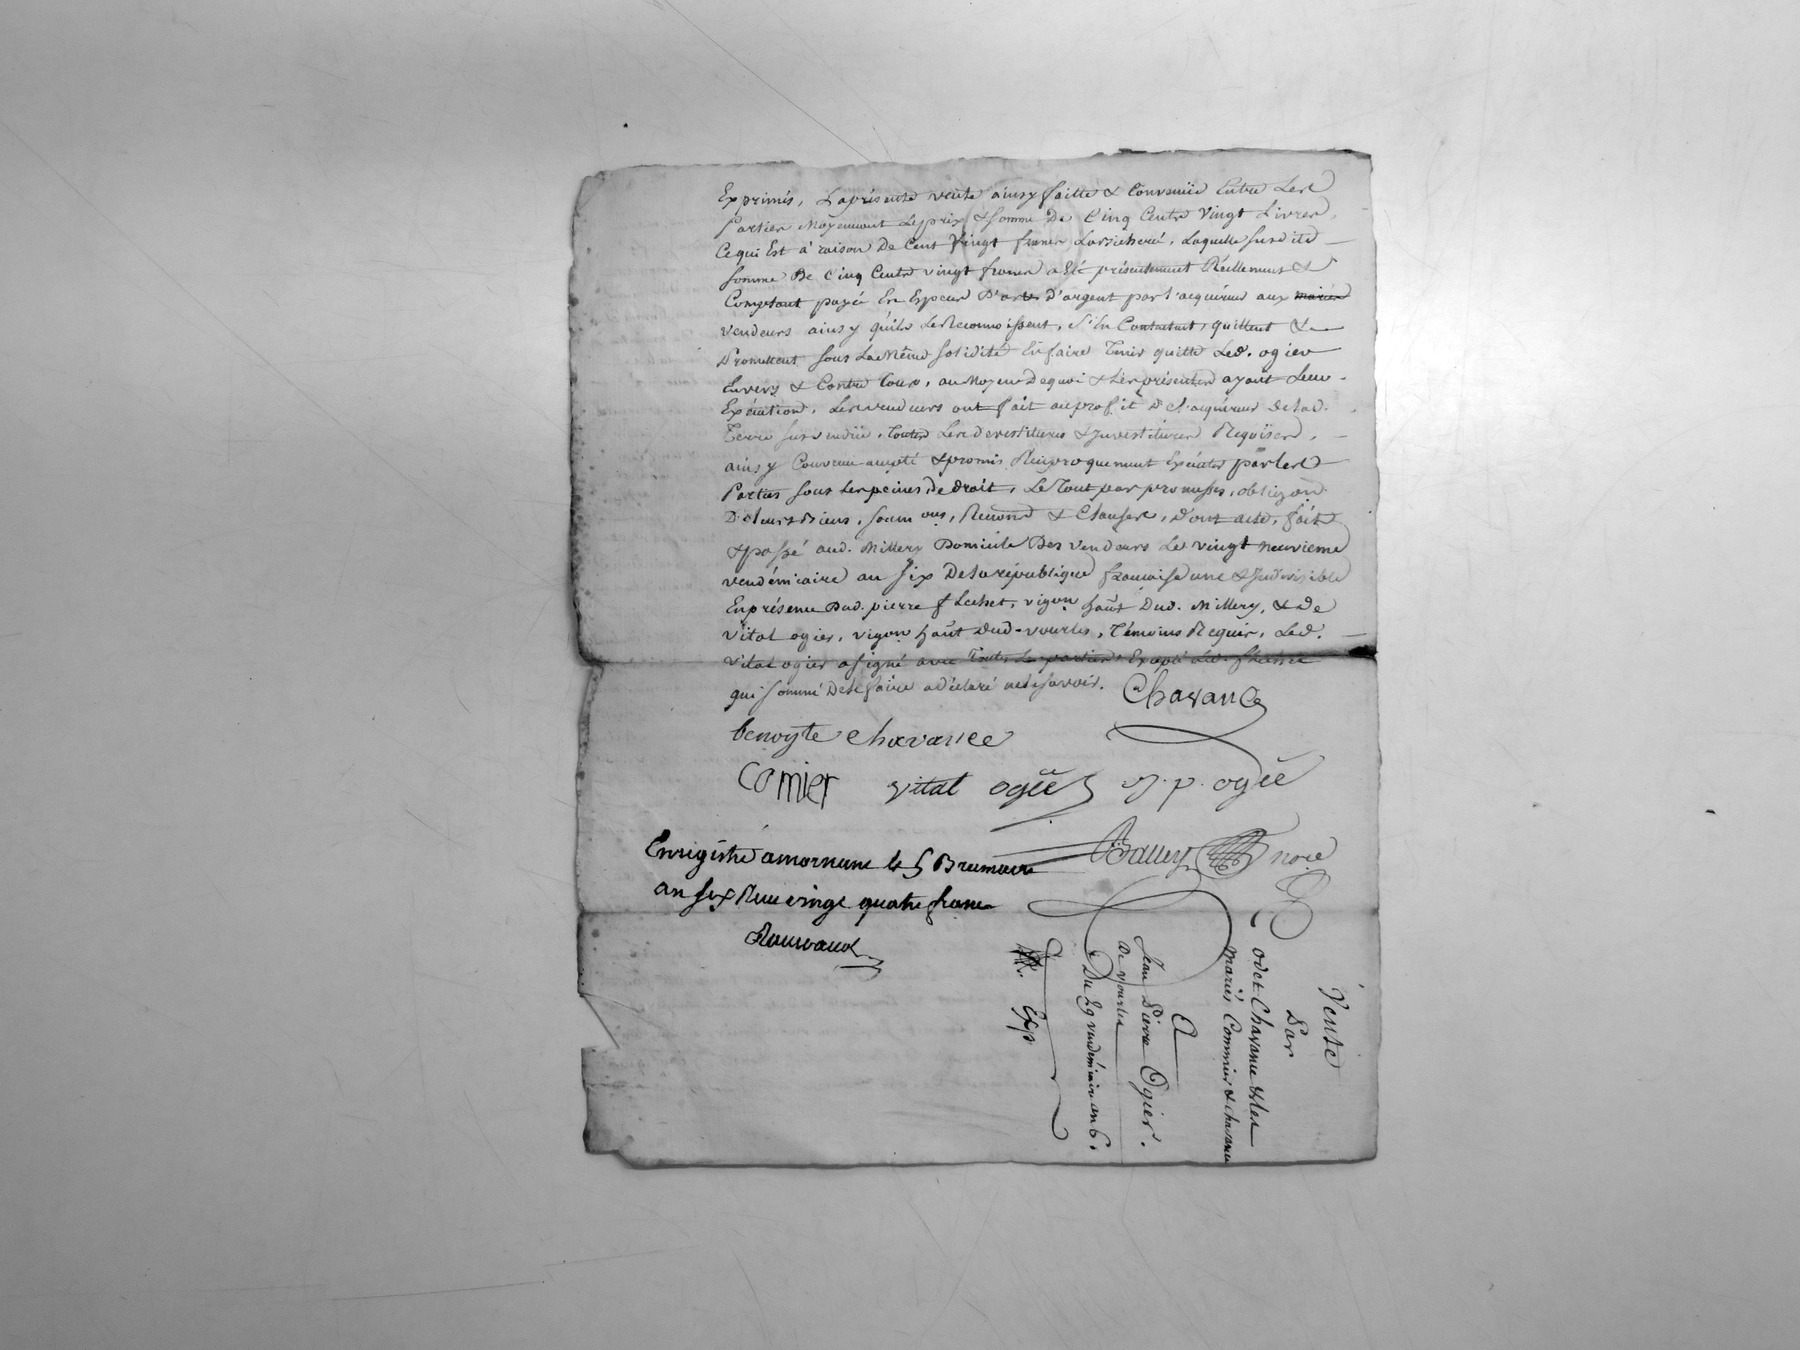 Exprimés, La présente vente ainsy faitte & Convenüe Entre Les
Parties Moyennant Le prix & somme De Cinq Cents Vingt Livres,
Ce qui Est à raison De Cent Vingt francs La bicherée, Laquelle susdite
somme De Cinq Cents vingt francs a Eté présentement Réellement &
Comptant payé En Especes D'or & d'argent par l'acquéreur aux mariés
vendeurs ainsy qu'ils Le Reconnoissent, s'En Contentent, quittent &
Promettent sous La Même solidité En faire Tenir quitte Led. ogier
Envers & Contre Tous, au Moyen De quoi & Les présentes ayant Leur
Exécution, Les vendeurs ont fait au profit De l'acquéreur de lad.
Terre sus vendüe, Toutes Les devestitures & Investitures Requises,
ainsy Convenu accepté & promis Réciproquement Exécuter par les
Parties sous Les peines de droit, Le Tout par promesses, obligaon
De leurs Biens, soumons, Renons & Clauses, D'ont acte, fait
& passé aud. Millery Domicile Des vendeurs Le vingt neuvieme
vendémiaire an six De la république française une & Indivisible
En présence Dud. pierre flechet, vigon haût Dud. Millery, & de
vital ogier, vigon haût Dud. vourles, Témoins Requis, Led.
vital ogier a signé avec Toutes Les parties, Excepté Led. flechet
qui sommé De le faire a déclaré ne le savoir. Chavance
benoyte chavance
Comier vital ogiê J. p. ogiê
Balley nore
Enregistré a mornant le 5 Brumaire
an six Reçu vingt quatre francs
Vente
Par
odet Chavance & les
mariés Commier & chavance
A
Jean Pierre Ogier.
De vourles
Du 29 vendémiaire an 6.
Exp